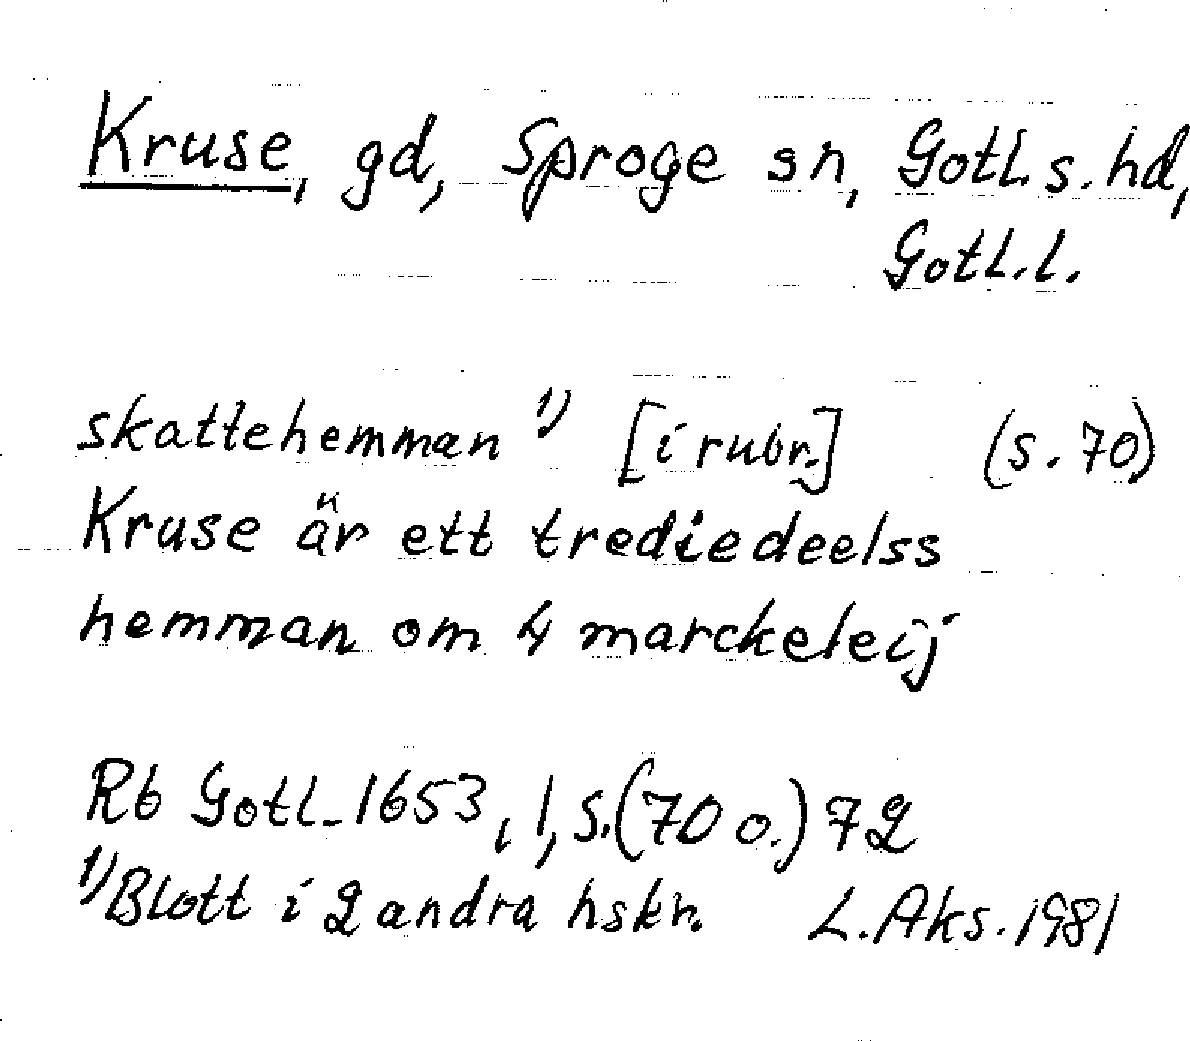 Kruse, gd, Sproge sn, Gotl. s. hd,
Gotl. l.
skattehemman 1) [i rubr.] (s. 70)
Kruse är ett trediedeelss
hemman om 4 marckeleij
Rb Gotl. 1653, 1, s. (70 o.) 72
1) Blott i 2 andra hskr. L. Aks. 1981